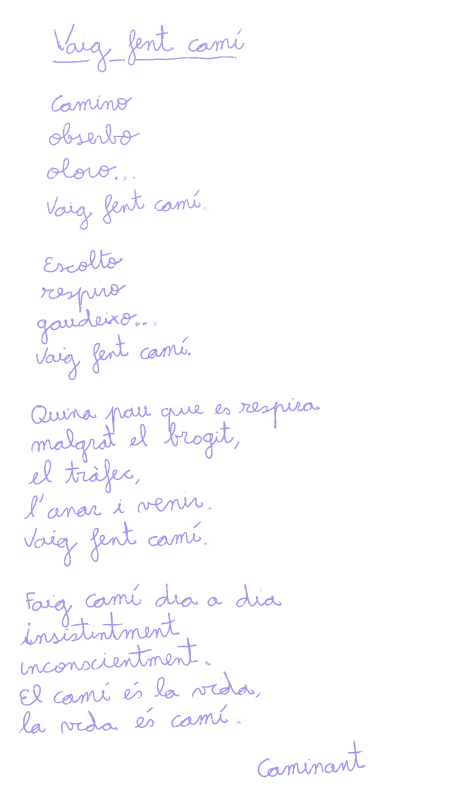 Vaig fent camí
Camino
observo
oloro...
Vaig fent camí.
Escolto
respiro
gaudeixo...
Vaig fent camí.
Quina pau que es respira
malgrat el brogit,
el tràfec,
l'anar i venir.
Vaig fent camí.
Faig camí dia a dia
insistintment
inconscientment.
El camí és la vida,
la vida és camí.
Caminant